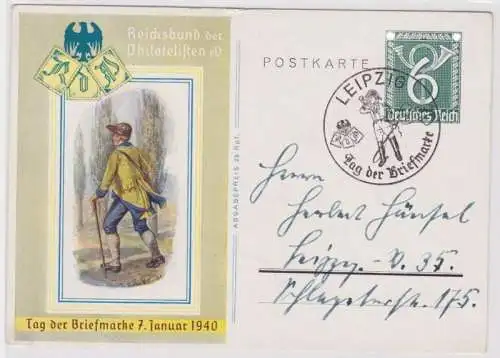 Reichsbund der
Philatelisten eV
R d P
Tag der Briefmarke 7. Januar 1940
ABGABEPREIS 25 Rpf.
POSTKARTE
6
Deutsches Reich
LEIPZIG
R d P
Tag der Briefmarke
Herrn
Herbert Hänsel
Leipzig - O. 35.
Schlageterstr. 175.